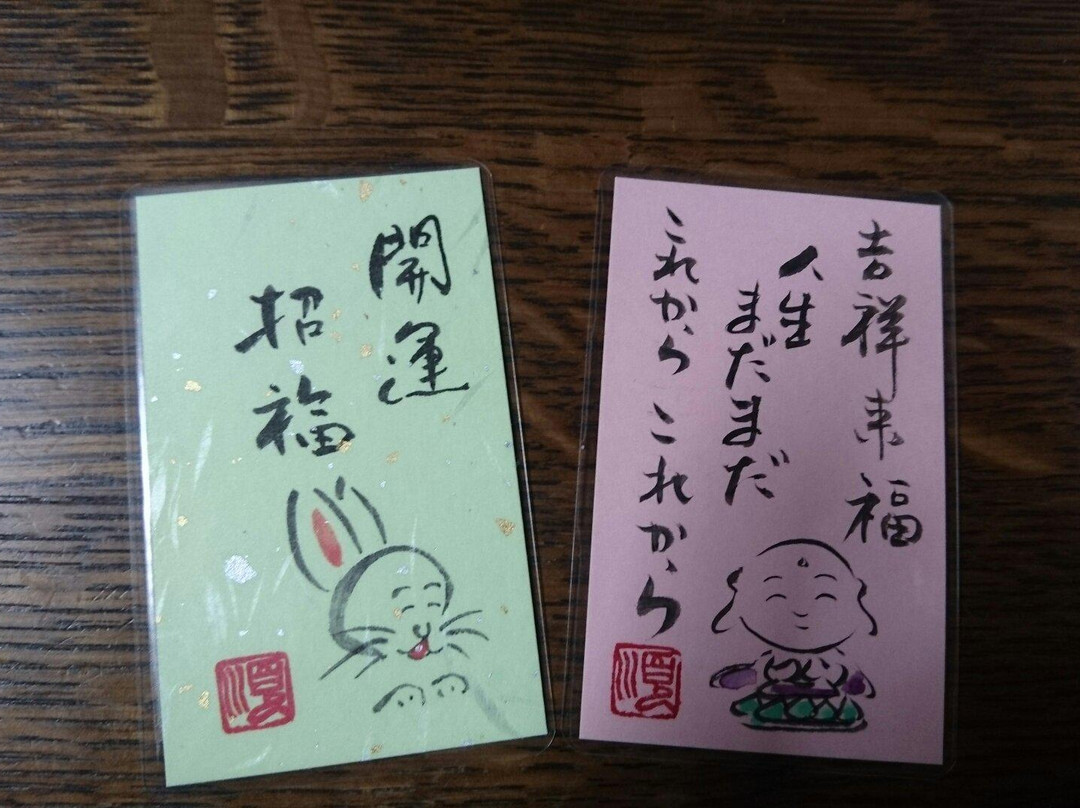 開運
招福
吉祥来福
人生
まだまだ
これから これから